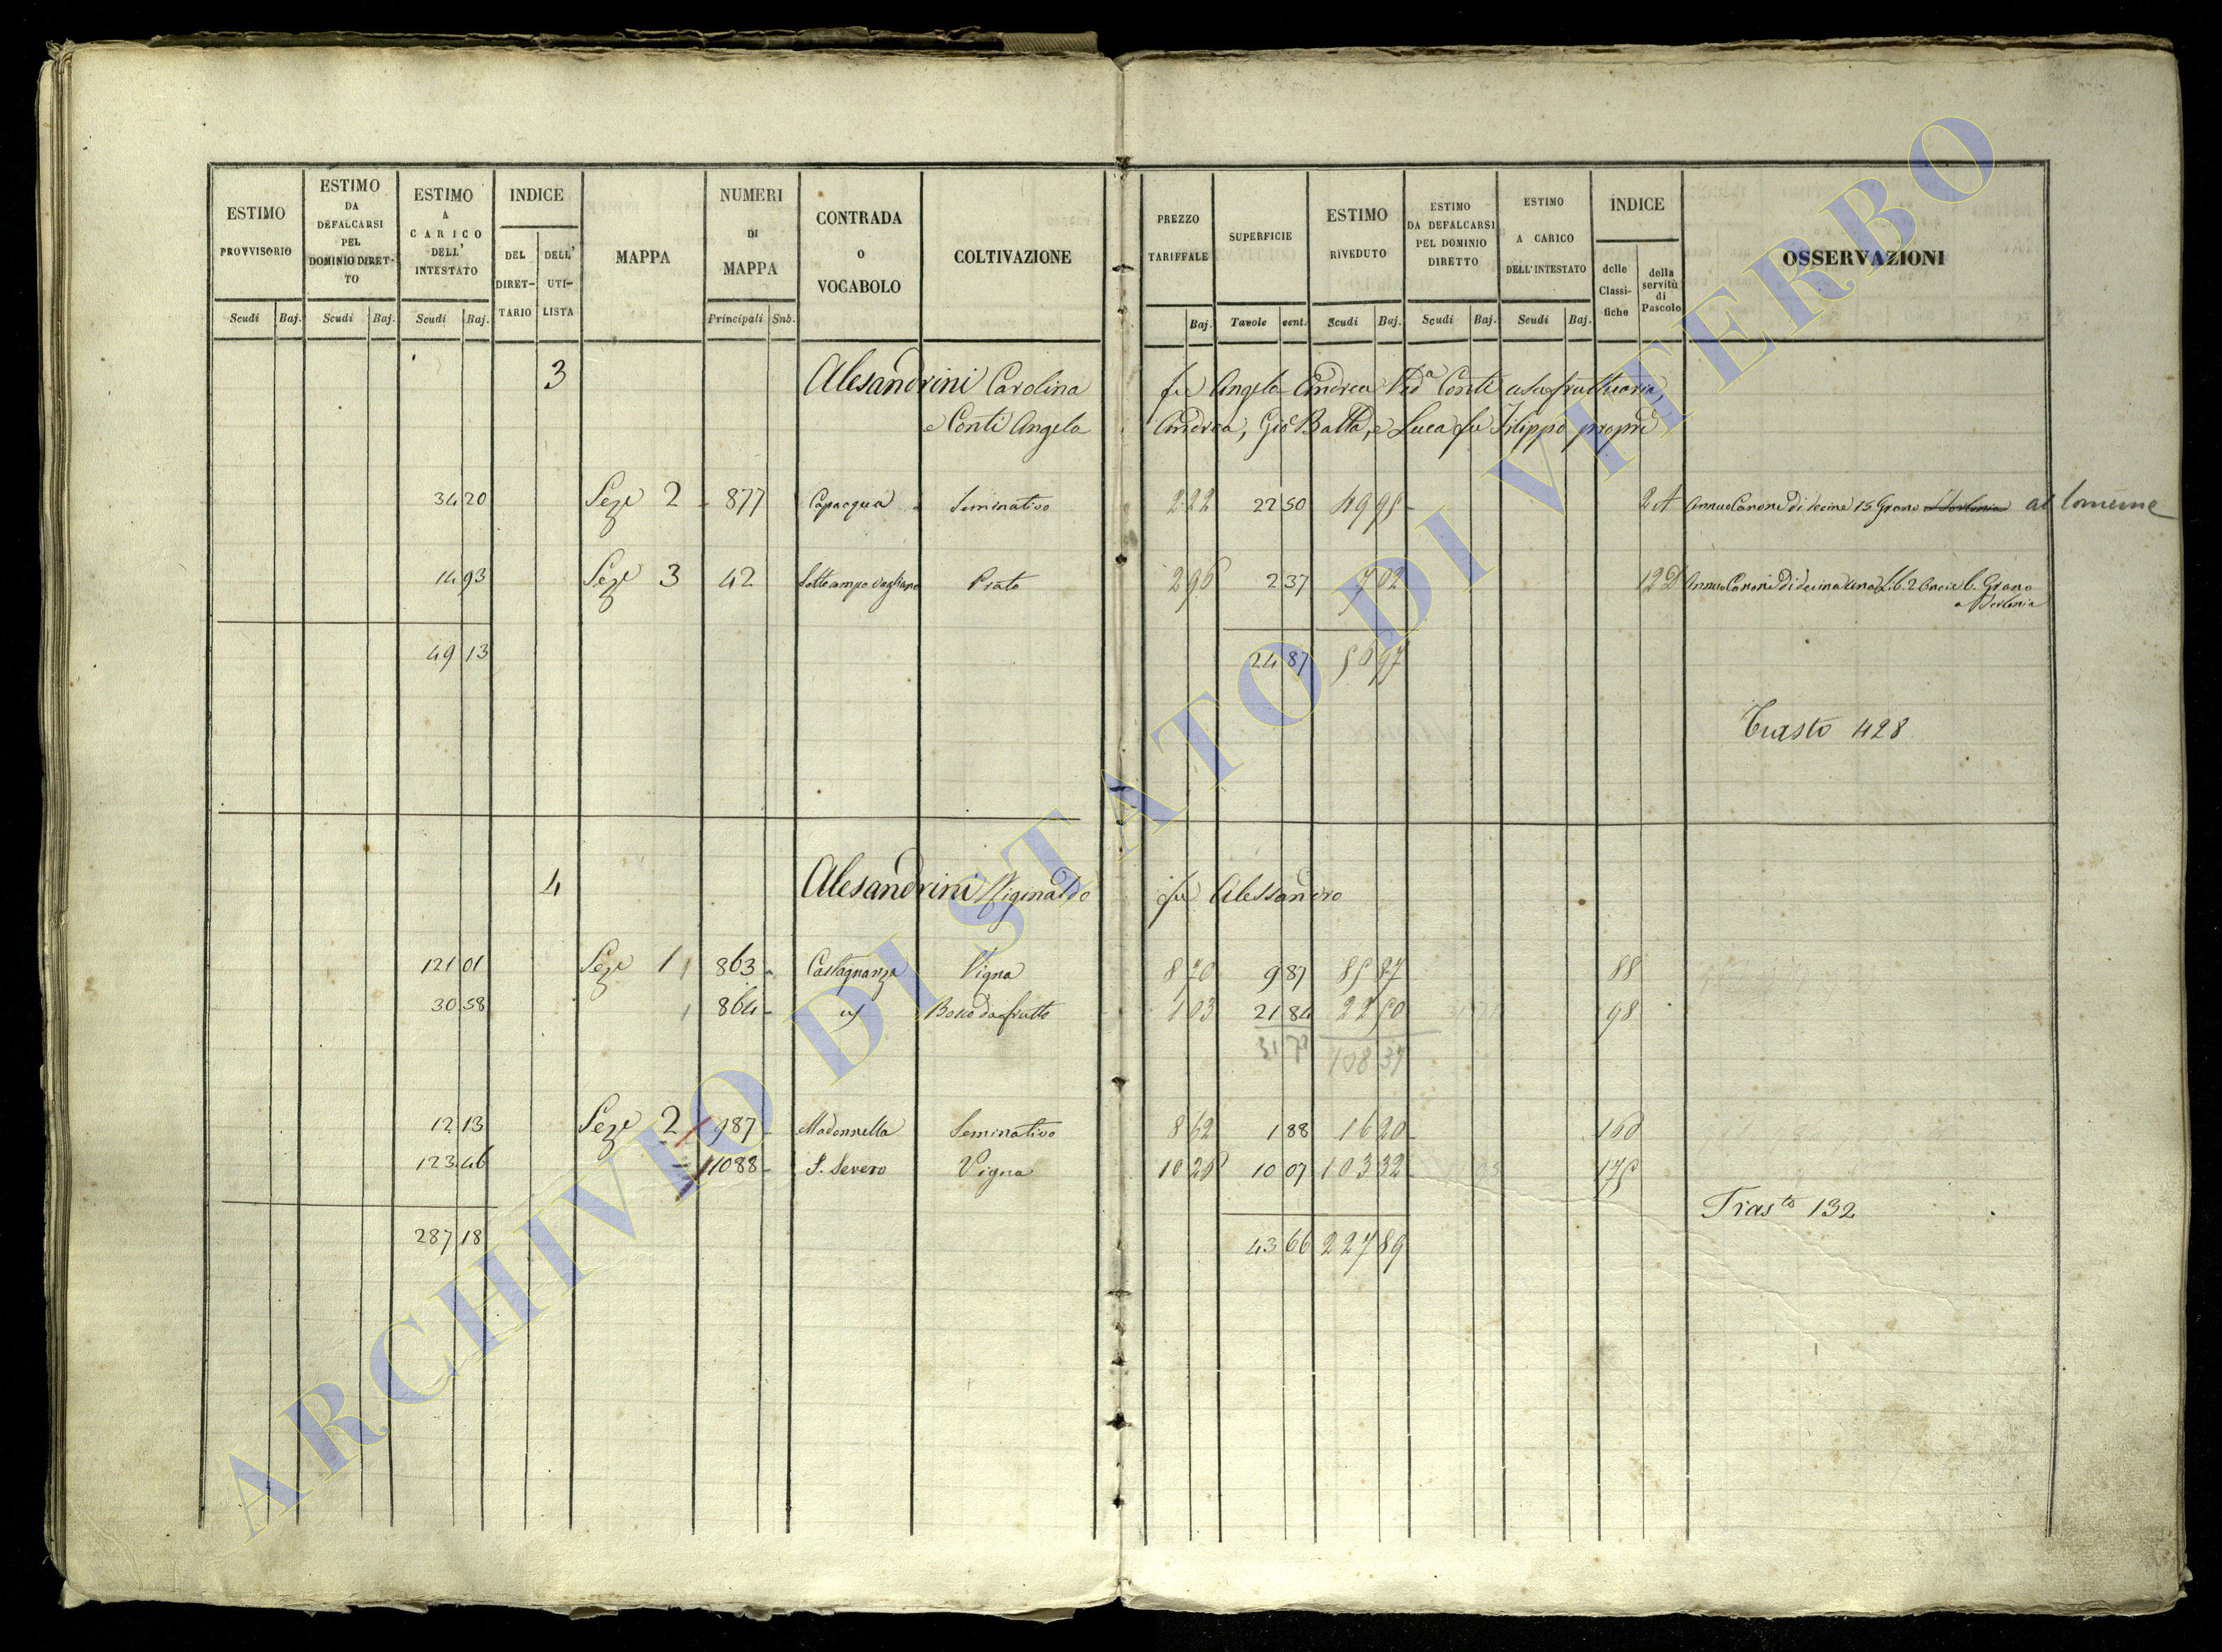 ESTIMO PROVVISORIO
Scudi Baj.
ESTIMO DA DEFALCARSI PEL DOMINIO DIRET- TO
Scudi Baj.
ESTIMO A CARICO DELL' INTESTATO
Scudi Baj.
INDICE
DEL DIRET- TARIO
DELL' UTI- LISTA
MAPPA
NUMERI DI MAPPA
Principali Sub.
CONTRADA o VOCABOLO
COLTIVAZIONE
PREZZO TARIFFALE
Baj.
SUPERFICIE
Tavole cent.
ESTIMO RIVEDUTO
Scudi Baj.
ESTIMO DA DEFALCARSI PEL DOMINIO DIRETTO
Scudi Baj.
ESTIMO A CARICO DELL' INTESTATO
Scudi Baj.
INDICE
delle Classi- fiche
della servitù di Pascolo
OSSERVAZIONI
3 Alesandrini Carolina fu Angelo Andrea Ved.a Conti usufruttuaria,
e Conti Angelo Andrea, Gio Batta, e Luca fu Filippo propri
34 20 Seze 2 877 Capacqua Seminativo 2 22 22 50 49 95 2 A Annuo Canone di decine 15 Grano al Comune
14 93 Seze 3 42 Sottocampo Vagliano Prato 2 96 2 37 7 02 12 D Annuo Canone di decina una Lib. 2 Oncie 6. Grano
a Torlonia
49 13 24 87 56 97
Trasto 428
4 Alesandrini Riginaldo fu Alessandro
121 01 Seze 1 863 Castagnanza Vigna 8 70 9 87 85 87 88
30 58 864 id Bosco da frutto 1 03 21 84 22 50 98
31 71 108 37
12 13 Seze 2 987 Madonnella Seminativo 8 62 1 88 16 20 160
123 46 1088 S. Severo Vigna 10 26 10 07 103 32 175
Trasto 132
287 18 43 66 227 89
ARCHIVIO DI STATO DI VITERBO